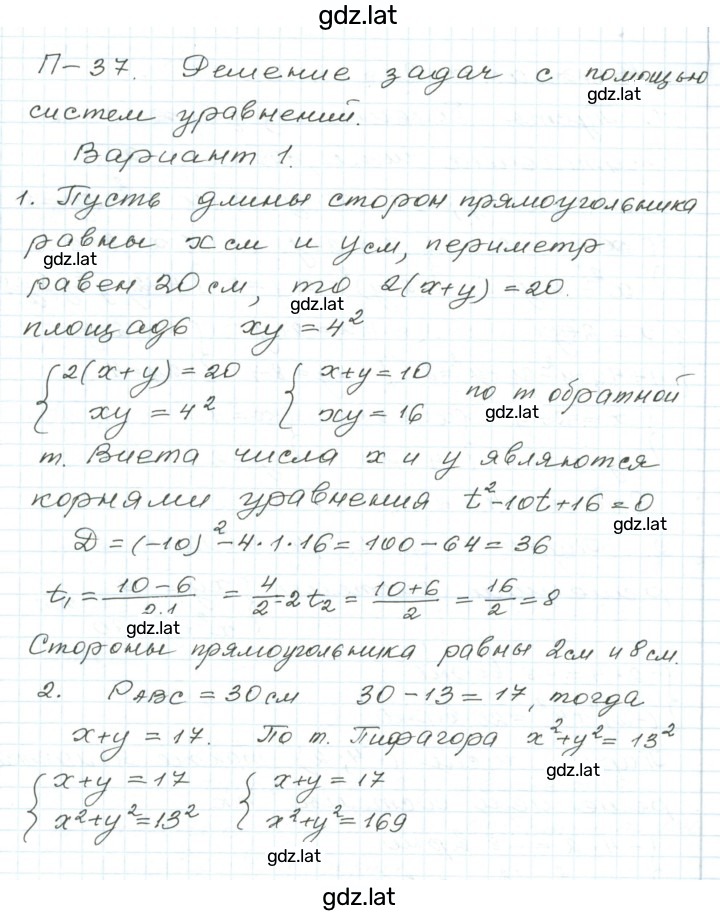 gdz.lat
П-37. Решение задач с помощью
gdz.lat
систем уравнений.
Вариант 1.
1. Пусть длины сторон прямоугольника
равны x см и y см, периметр
gdz.lat
равен 20 см, то 2(x+y) = 20.
gdz.lat
площадь xy = 4²
{2(x+y) = 20 {x+y = 10 по т обратной
{xy = 4² {xy = 16
gdz.lat
т. Виета числа x и y являются
корнями уравнения t²-10t+16=0
gdz.lat
D = (-10)² - 4·1·16 = 100 - 64 = 36
t₁ = (10-6)/(2·1) = 4/2 = 2 t₂ = (10+6)/2 = 16/2 = 8
gdz.lat
Стороны прямоугольника равны 2см и 8см.
2. PABC = 30 см 30 - 13 = 17, тогда
x+y = 17. По т. Пифагора x²+y² = 13²
gdz.lat
{x+y = 17 {x+y = 17
{x²+y² = 13² {x²+y² = 169
gdz.lat
gdz.lat